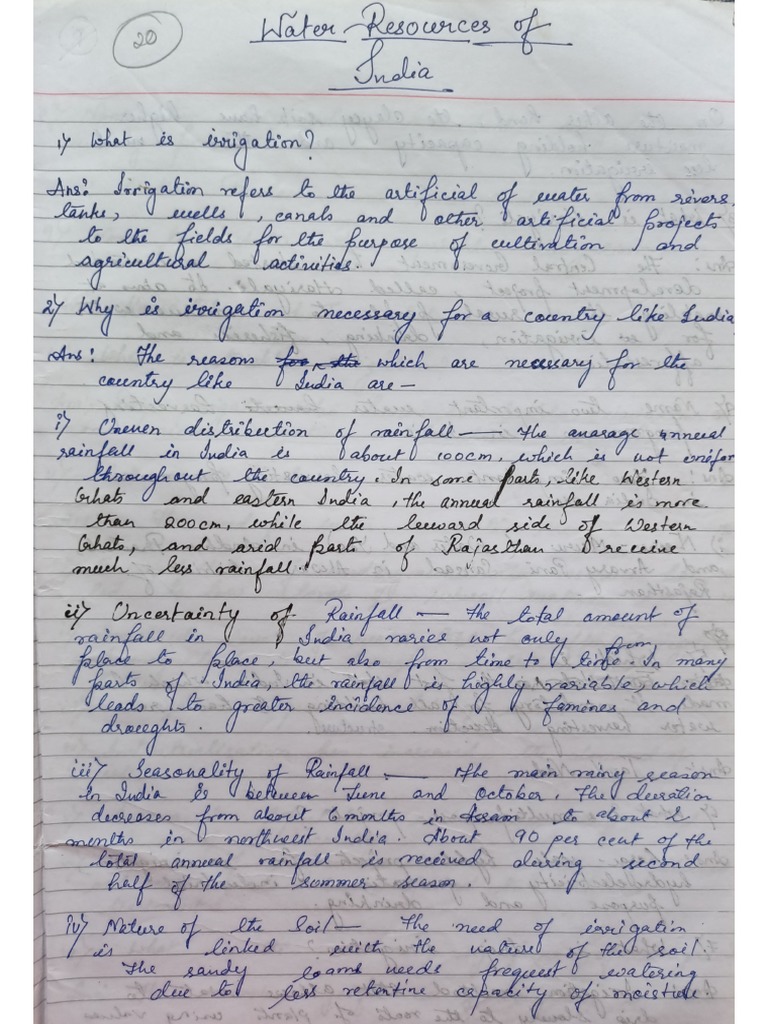 20
Water Resources of
India
1) What is irrigation?
Ans: Irrigation refers to the artificial of water from rivers,
tanks, wells, canals and other artificial projects
to the fields for the purpose of cultivation and
agricultural activities.
2) Why is irrigation necessary for a country like India
Ans: The reasons which are necessary for the
country like India are —
i) Uneven distribution of rainfall — The avarage annual
rainfall in India is about 100cm, which is not unifor
throughout the country. In some parts, like Western
Ghats and eastern India, the annual rainfall is more
than 200cm, while the leeward side of Western
Ghats, and arid parts of Rajasthan receive
much less rainfall.
ii) Uncertainty of Rainfall — The total amount of
rainfall in India varies not only from
place to place, but also from time to time. In many
parts of India, the rainfall is highly variable, which
leads to greater incidence of famines and
droughts.
iii) Seasonality of Rainfall — The main rainy season
in India is between June and October. The duration
decreases from about 6 months in Assam to about 2
months in northwest India. About 90 per cent of the
total annual rainfall is received during second
half of the summer season.
iv) Nature of the Soil — The need of irrigation
is linked with the nature of the soil.
The sandy loams needs frequent watering
due to less retentive capacity of moisture.